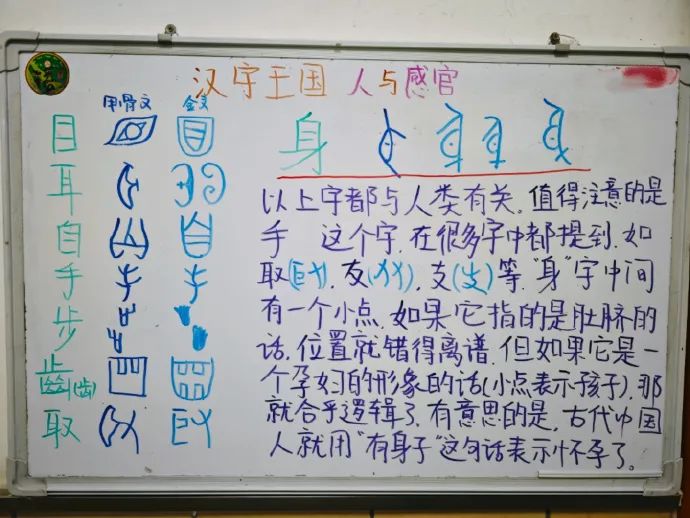 汉字王国 人与感官
甲骨文 金文
目
耳
自
手
步
齒(齿)
取
身
以上字都与人类有关.值得注意的是
手 这个字.在很多字中都提到.如
取( ).友( ).支( )等."身"字中间
有一个小点.如果它指的是肚脐的
话.位置就错得离谱.但如果它是一
个孕妇的形象的话(小点表示孩子).那
就合乎逻辑了.有意思的是,古代中国
人就用"有身子"这句话表示怀孕了.